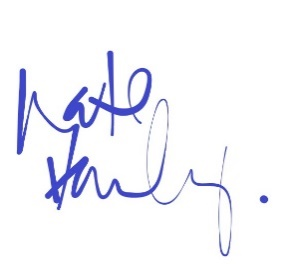 Nate
Hanley.